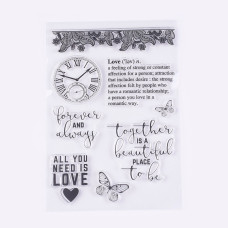 Love ('lav) n.
a feeling of strong or constant
affection for a person. attraction
that includes desire : the strong
affection felt by people who
have a romantic relationship.
a person you love in a
romantic way.
forever
AND
always
together
IS A
beautiful
PLACE
to be
ALL YOU
NEED IS
LOVE